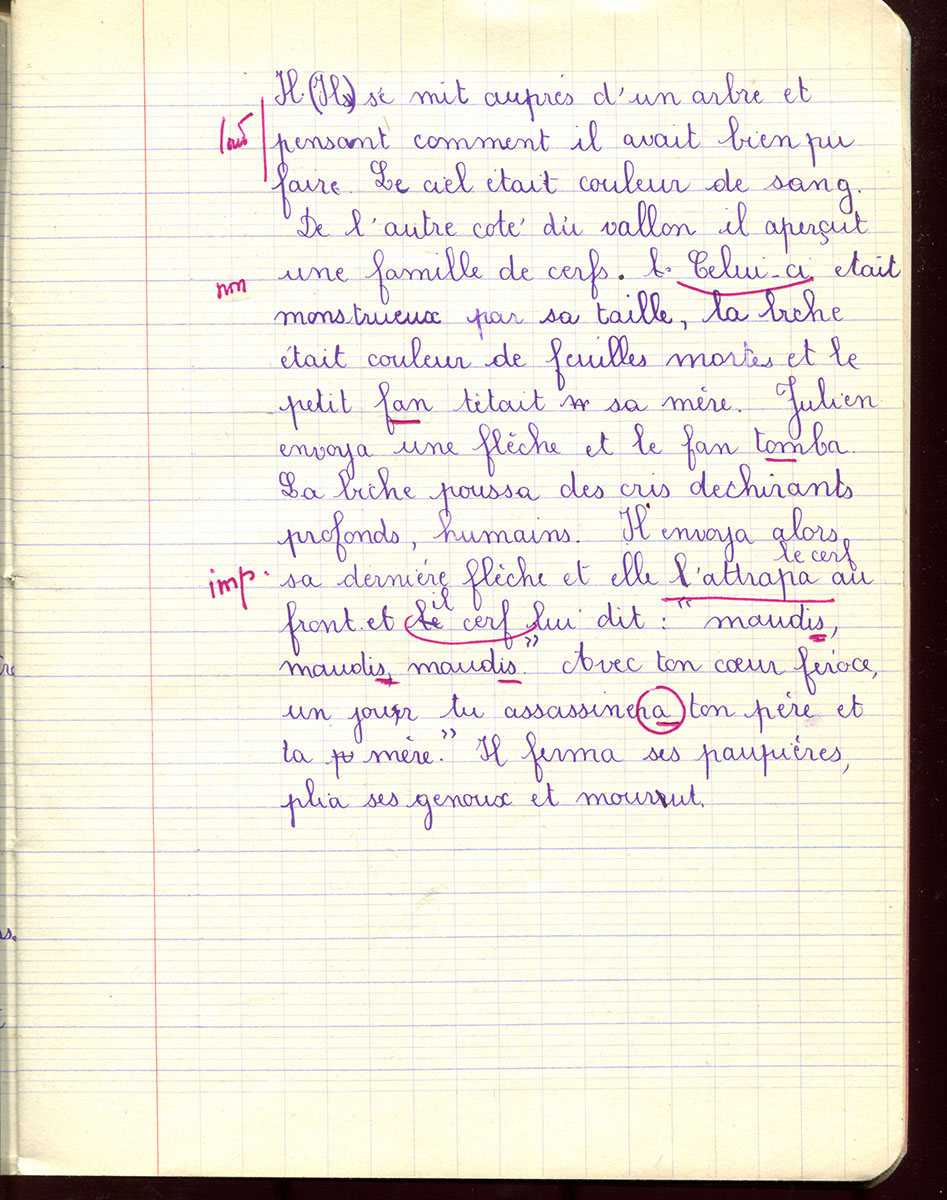 Il (Ils) sé mit auprés d'un arbre et
lourd pensant comment il avait bien pu
faire. Le ciel était couleur de sang.
De l'autre coté du vallon il aperçut
une famille de cerfs. Celui-ci etait
non
monstrueux par sa taille, la biche
était couleur de feuilles mortes et le
petit fan têtait sa mére. Julien
envoya une flèche et le fan tomba.
La biche poussa des cris dechirants
profonds, humains. Il envoya alors
le cerf
imp. sa derniére flèche et elle l'attrapa au
il
front et le cerf lui dit : "maudis,
maudis, maudis". Avec ton cœur féroce,
un jour tu assassinera ton père et
ta mère." Il ferma ses paupiéres,
plia ses genoux et mourrut.